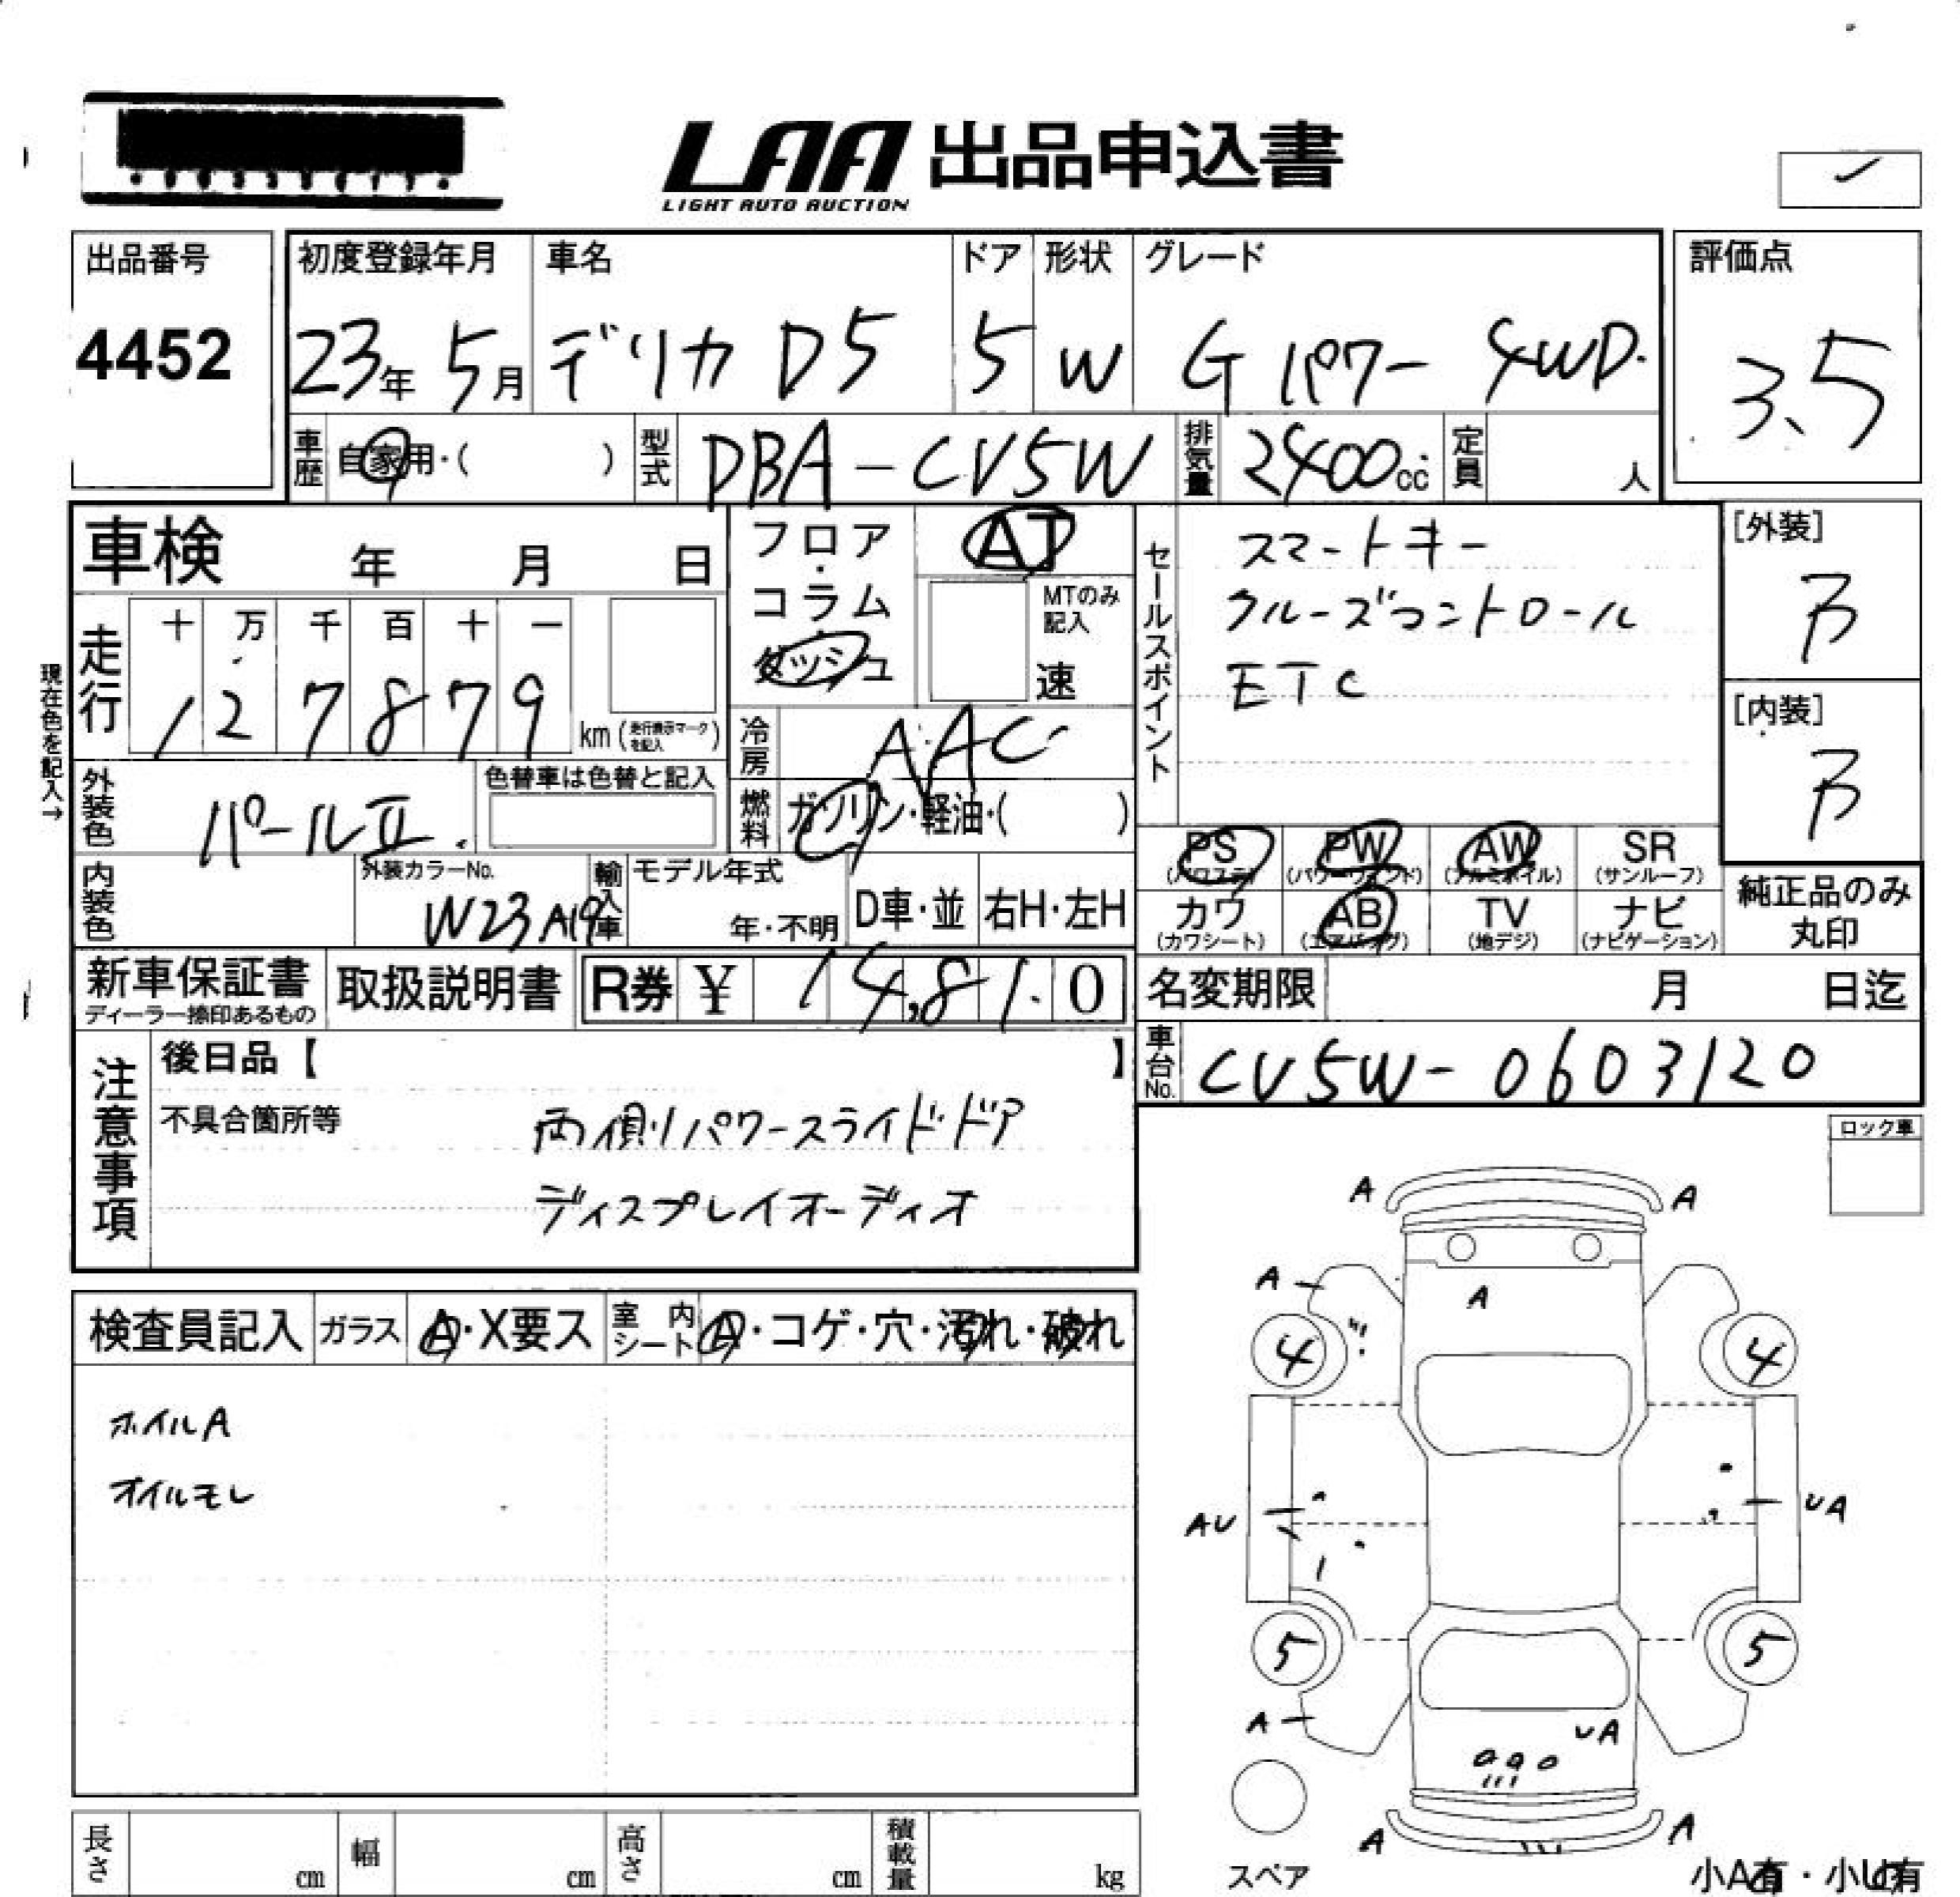 LAA 出品申込書
LIGHT AUTO AUCTION
出品番号
4452
初度登録年月
23年 5月
車名
デリカ D5
ドア
5
形状
W
グレード
G パワー 4WD.
評価点
3.5
車歴
自家用・( )
型式
DBA-CV5W
排気量
2400cc
定員
人
車検 年 月 日
フロア・コラム・ダッシュ
AT
MTのみ記入
速
現在色を記入→
走行
十 万 千 百 十 一
1 2 7 8 7 9
km (走行表示マークを記入)
冷房
AAC
燃料
ガソリン・軽油・( )
外装色
パールII.
色替車は色替と記入
内装色
外装カラーNo.
W23A19
輸入車
モデル年式
年・不明
D車・並
右H・左H
セールスポイント
スマートキー
クルーズコントロール
ETC
[外装]
B
[内装]
B
PS (パワステ)
PW (パワーウィンド)
AW (アルミホイル)
SR (サンルーフ)
カワ (カワシート)
AB (エアバッグ)
TV (地デジ)
ナビ (ナビゲーション)
純正品のみ
丸印
新車保証書
ディーラー捺印あるもの
取扱説明書
R券 ¥ 14,810
名変期限 月 日迄
車台No.
CV5W-0603120
注意事項
後日品【 】
不具合箇所等
両側パワースライドドア
ディスプレイオーディオ
ロック車
検査員記入
ガラス
A・X要ス
室内シート
A・コゲ・穴・汚れ・破れ
ホイルA
オイルモレ
A A
A A
4 4
AU UA
5 5
A UA
A A
スペア
小A有・小U有
長さ cm
幅 cm
高さ cm
積載量 kg